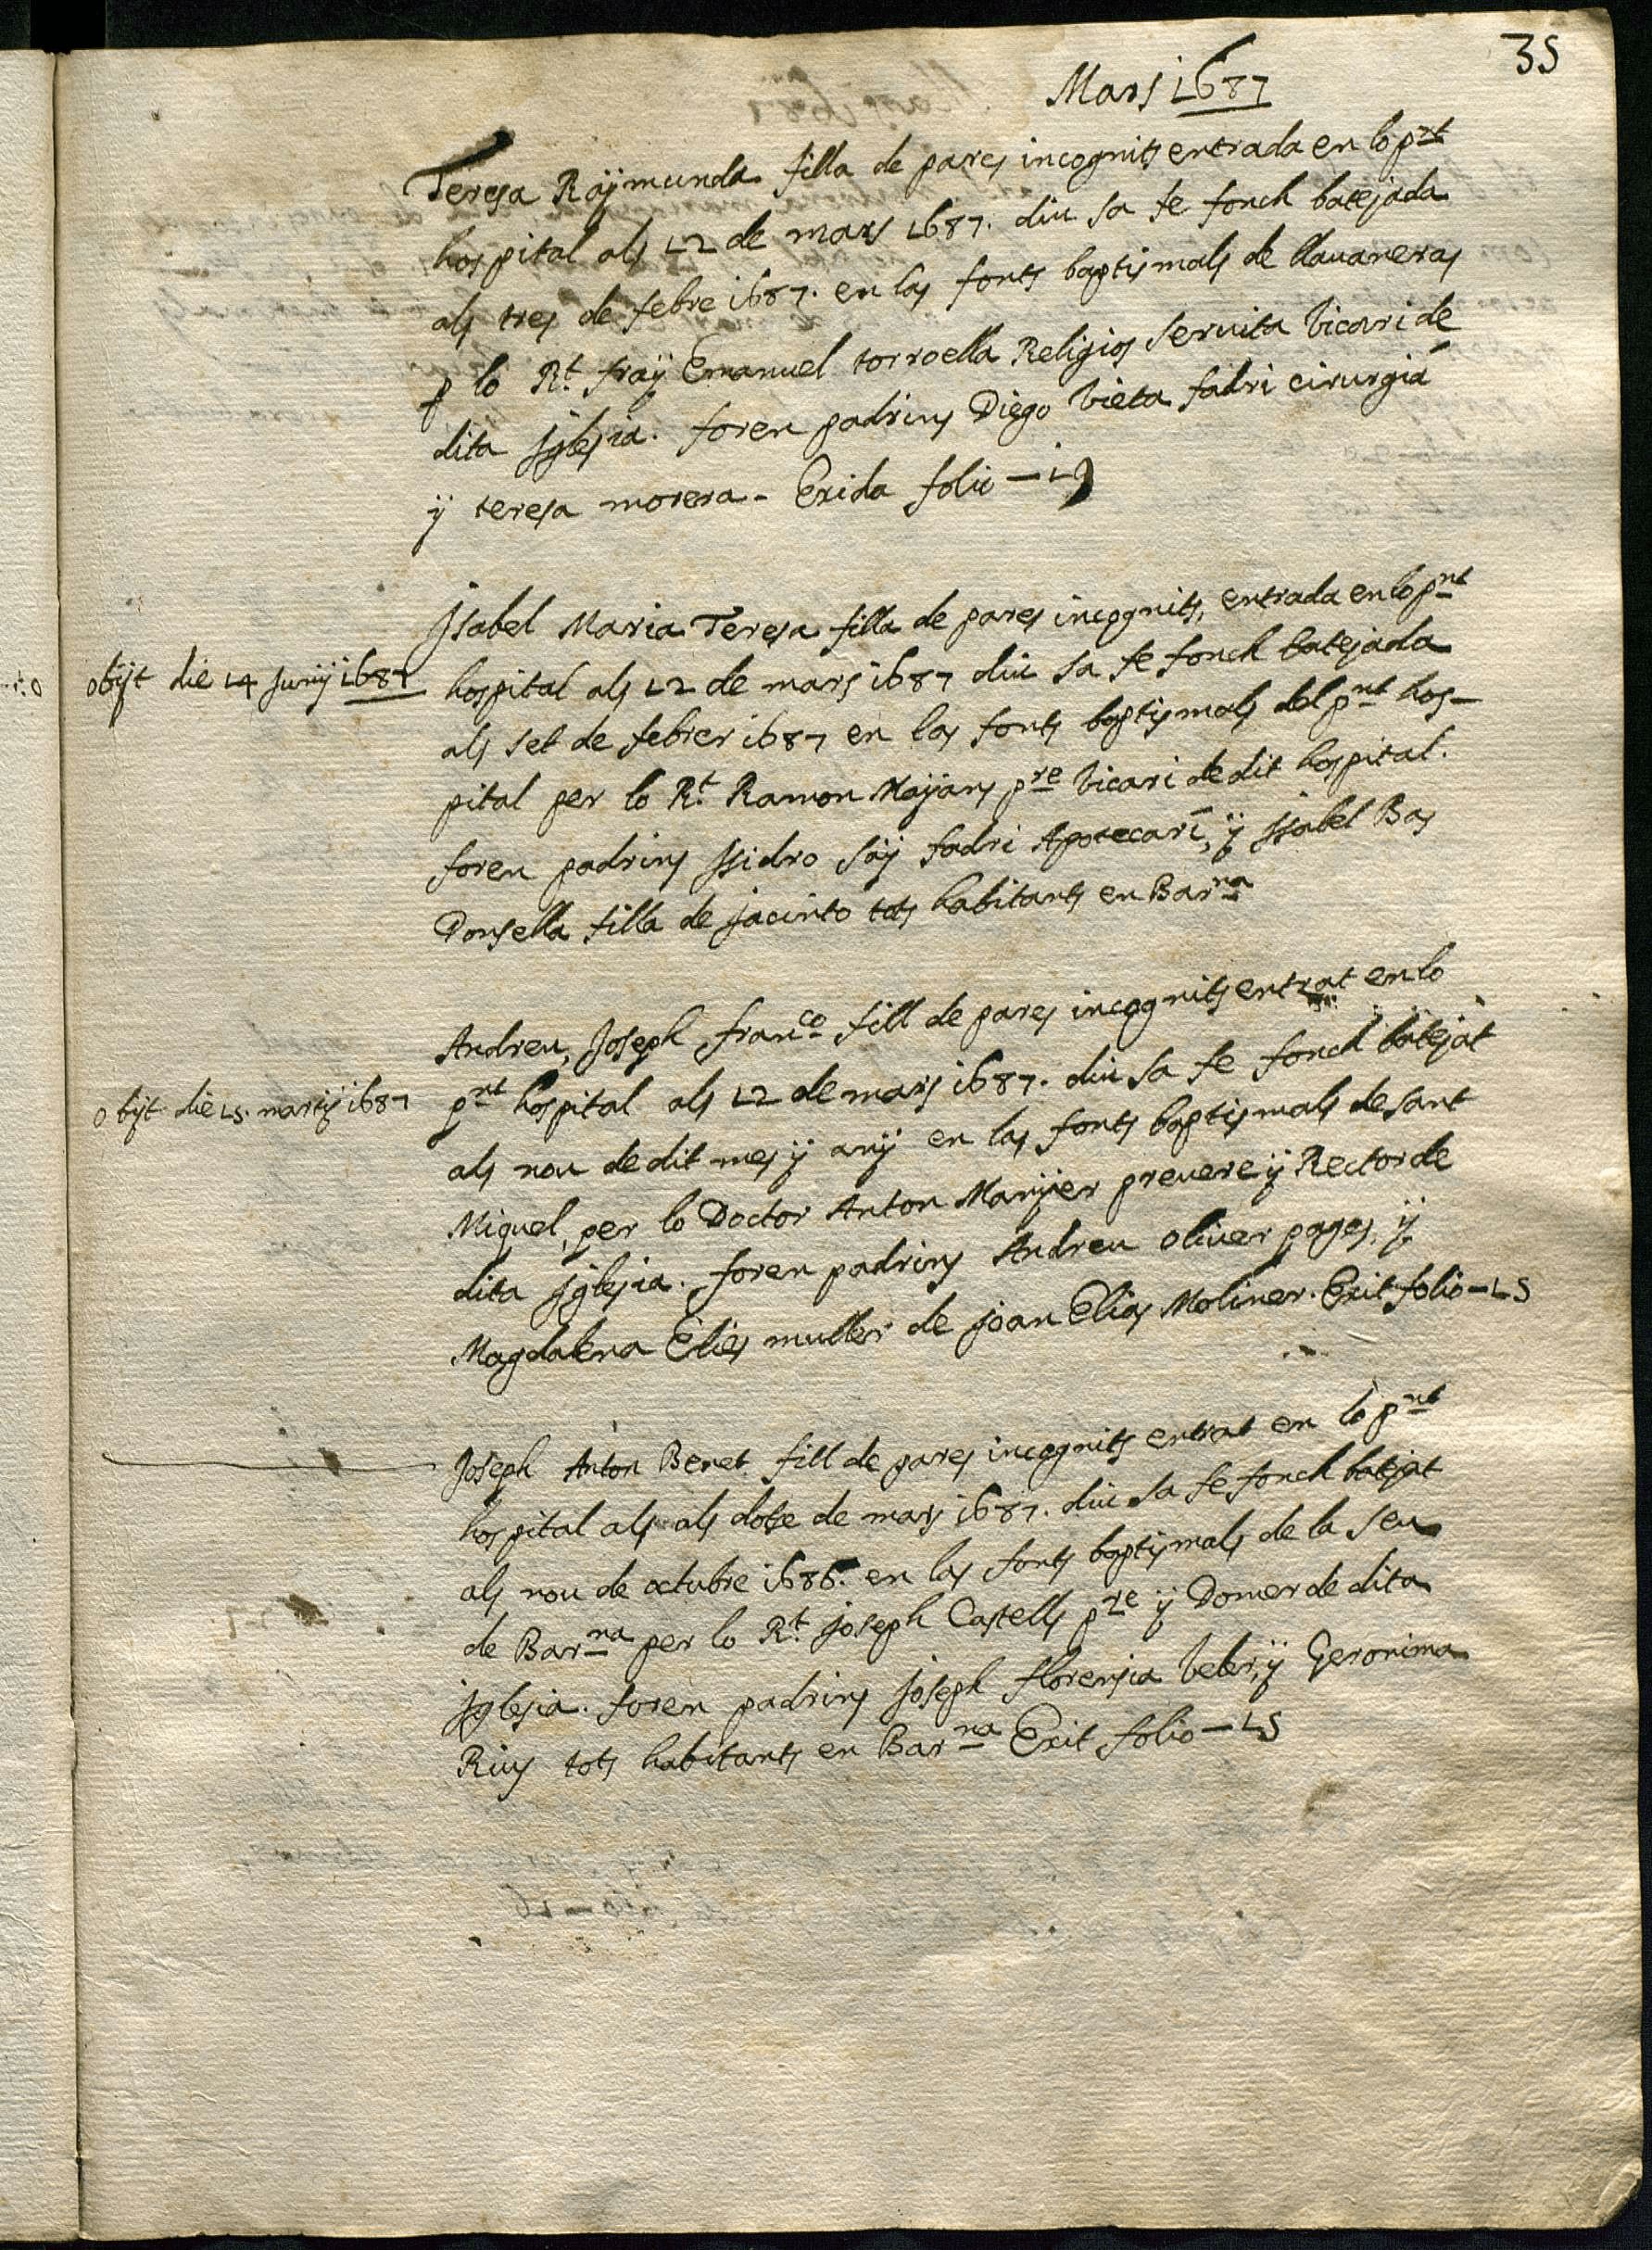 35
Mars 1687
Teresa Raÿmunda filla de pares incognits entrada en lo pnt
hospital als 12 de mars 1687. diu sa fe fonch batejada
als tres de febre 1687. en las fonts baptismals de llavaneras
p lo Rt. fraÿ Emanuel torroella Religios Servita Vicari de
dita Jglesia. foren padrins Diego Vieta fadri cirurgiá
ÿ teresa morera - Exida folio — 19
Jsabel Maria Teresa filla de pares incognits, entrada en lo pnt
obijt die 14 Junÿ 1687
hospital als 12 de mars 1687 diu sa fe fonch batejada
als set de febrer 1687 en las fonts baptismals del pnt hos-
pital per lo Rt. Ramon Maÿans pre Vicari de dit hospital.
foren padrins Jsidro saÿ fadri Apotecari, ÿ Jsabel Bas
Donsella filla de Jacinto tots habitants en Barna
Andreu, Joseph franco fill de pares incognits entrat en lo
obijt die 15. martÿ 1687
pnt hospital als 12 de mars 1687. diu sa fe fonch batejat
als nou de dit mes ÿ anÿ en las fonts baptismals de sant
Miquel, per lo Doctor Anton Manÿer prevere ÿ Rector de
dita Jglesia. foren padrins Andreu oliver pages, ÿ
Magdalena Elies muller de joan Elias Moliner. Exit folio — 15
Joseph Anton Benet fill de pares incognits entrat en lo pnt
hospital als als dotse de mars 1687. diu sa fe fonch batejat
als nou de octubre 1686. en las fonts baptismals de la Seu
de Barna per lo Rt. Joseph Castells pre ÿ Domer de dita
jglesia. foren padrins joseph florensia Veler, ÿ Geronima
Rius tots habitants en Barna Exit folio — 15